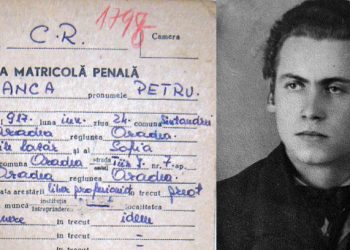 1798
C.R.
Camera
A MATRICOLĂ PENALĂ
ANCA pronumele PETRU
917. luna iun. ziua 24. comuna Sintandrei
Oradea regiunea Oradea
Lazăr și al Sofia
comuna Oradea strada nr. 7. ap.
Oradea regiunea Oradea
ata arestării liber profesionist în trecut preot
muncă instituția întreprinderea localitatea
în trecut idem
în trecut